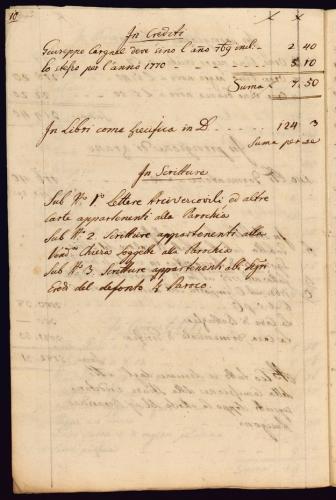 10
In Crediti
Giuseppe Cargnel deve sino l'año 769 incl. 2 40
lo stesso per l'anno 1770 5 10
Suma L 7,50
In Libri come specifica in D. 124 3
Suma per se
In Scritture
Sub Nº 1º Lettere Arcivescovili ed altre
carte appartenenti alla Parochia
Sub Nº 2. Scritture appartenenti alla
Vendª Chiesa soggette alla Parochia
Sub Nº 3. Scritture appartenenti alli
Eredi del defonto Paroco